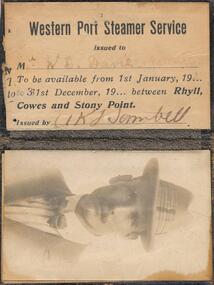 Western Port Steamer Service
Issued to
M W. D.
To be available from 1st January, 19...
to 31st December, 19... between Rhyll,
Cowes and Stony Point.
Issued by